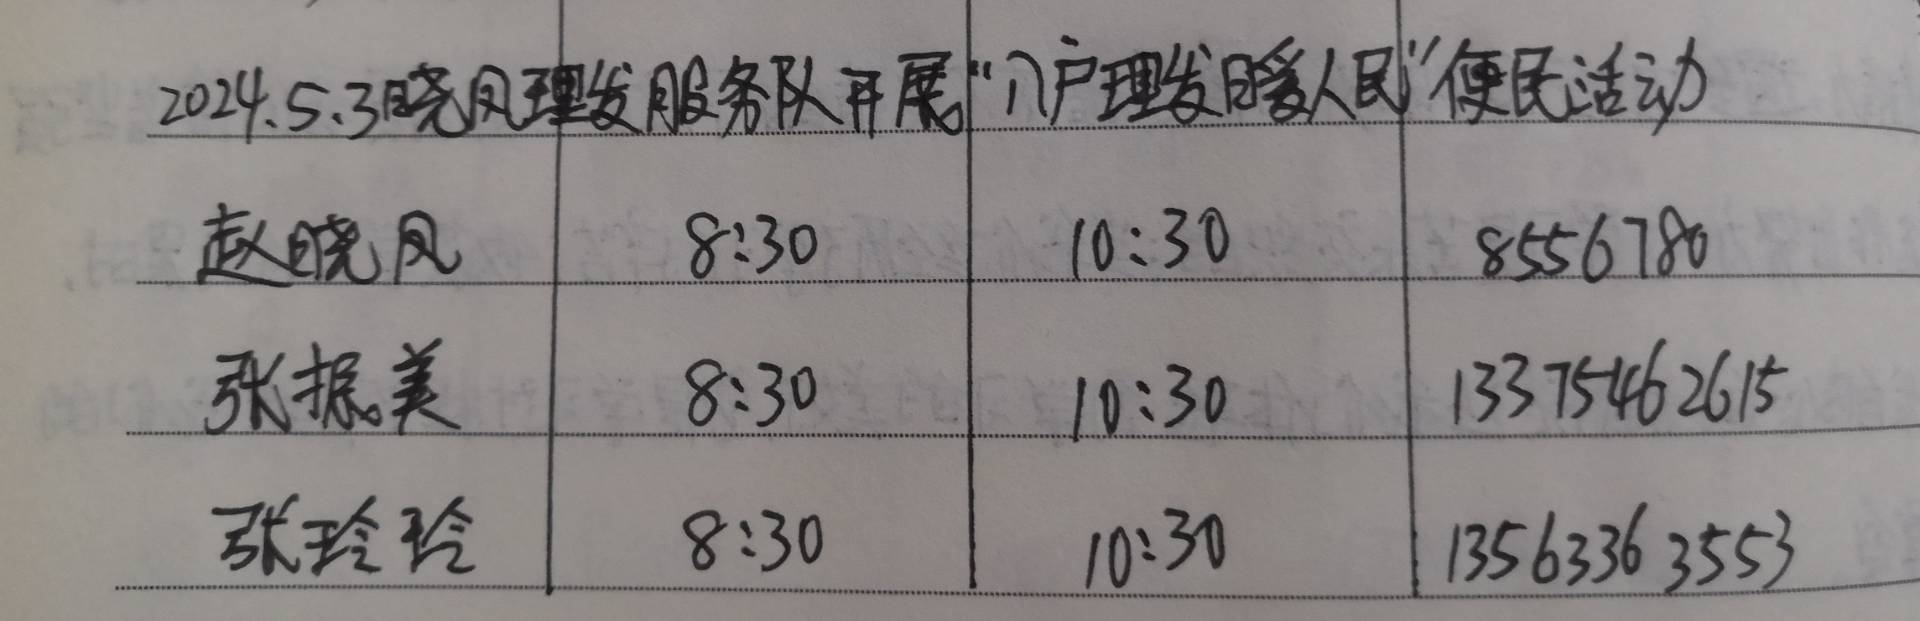 2024.5.3晓风理发服务队开展“入户理发暖人民”便民活动
赵晓风 8:30 10:30 8556780
张振美 8:30 10:30 13375462615
张玲玲 8:30 10:30 13563363553